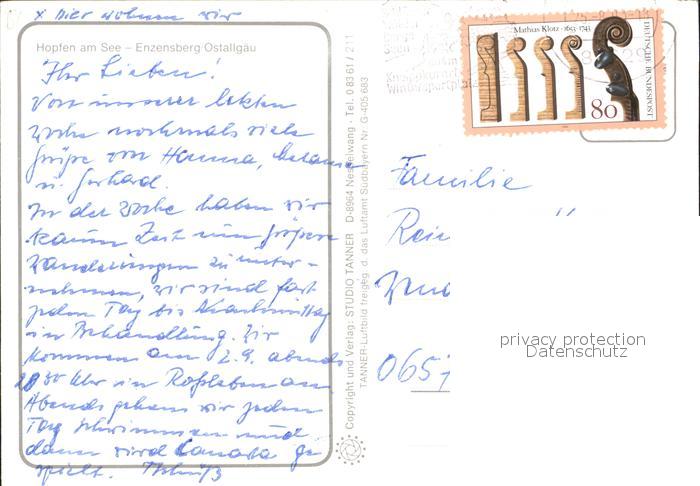 x hier wohnen wir
Hopfen am See – Enzensberg Ostallgäu
Ihr Lieben!
Von unserer letzten
Woche nochmals viele
Grüße von Hanna,
u. Gerhard.
In der Woche haben wir
kaum Zeit um größere
Wanderungen zu unter-
nehmen, wir sind fast
jeden Tag bis Nachmittag
in Behandlung. Wir
kommen am 2.9. abends
20 30 Uhr in Roßleben an
Abends gehen wir jeden
Tag schwimmen und
dann wird Canasta ge
spielt. Tschüß
Copyright und Verlag: STUDIO TANNER D-8964 Nesselwang · Tel. 0 83 61 / 2 11
TANNER-Luftbild freigeg. d. das Luftamt Südbayern Nr. G-405 683
Mathias Klotz · 1653-1743
DEUTSCHE BUNDESPOST
80
Familie
Rei
0651
privacy protection
Datenschutz